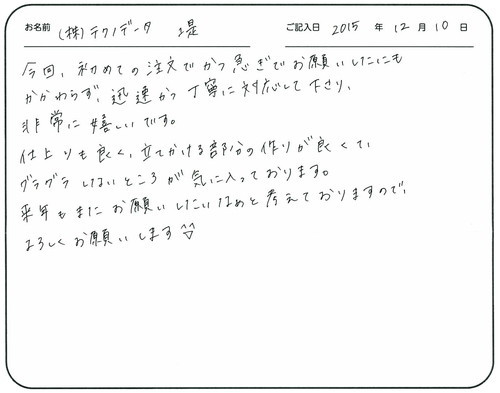 お名前 (株)テクノデータ 堤 ご記入日 2015 年 12 月 10 日
今回、初めての注文でかつ急ぎでお願いしたにも
かかわらず、迅速かつ丁寧に対応して下さり、
非常に嬉しいです。
仕上りも良く、立てかける部分の作りが良くて、
グラグラしないところが気に入っております。
来年もまたお願いしたいなあと考えておりますので、
よろしくお願いします